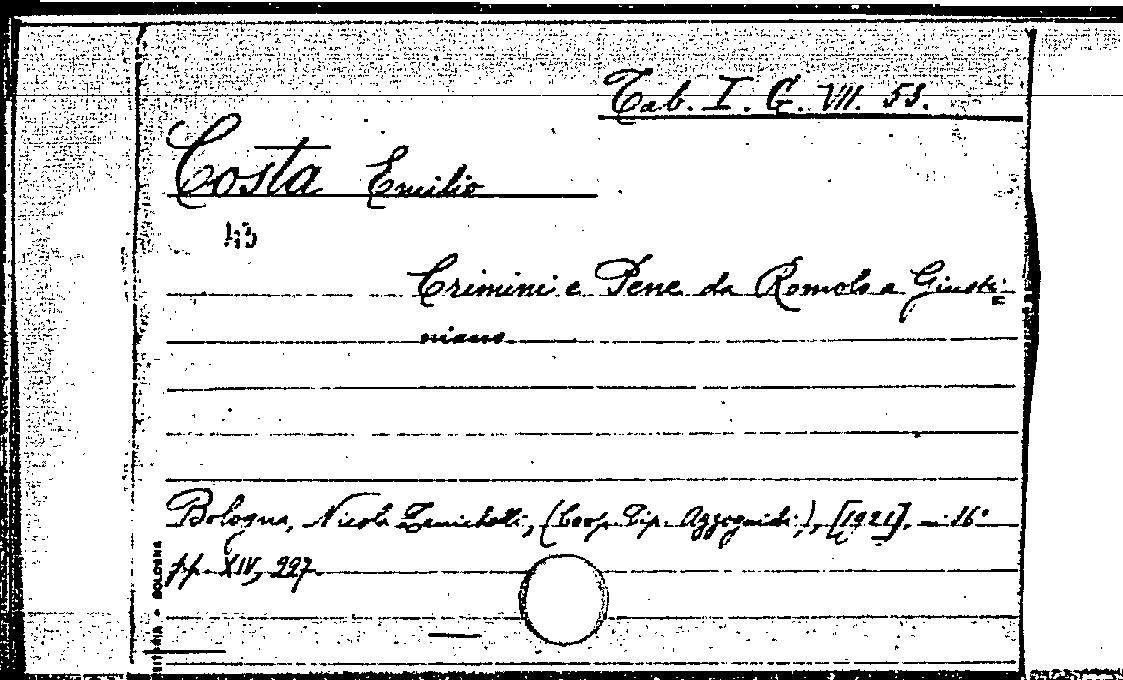 Tab. I. G. VII. 53.
Costa Emilio
43
Crimini e Pene da Romolo a Giusti=
niano.
Bologna, Nicola Zanichelli, (Coop. Tip. Azzoguidi), [1921], in 16°
pp. XIV, 227.
BOLOGNA